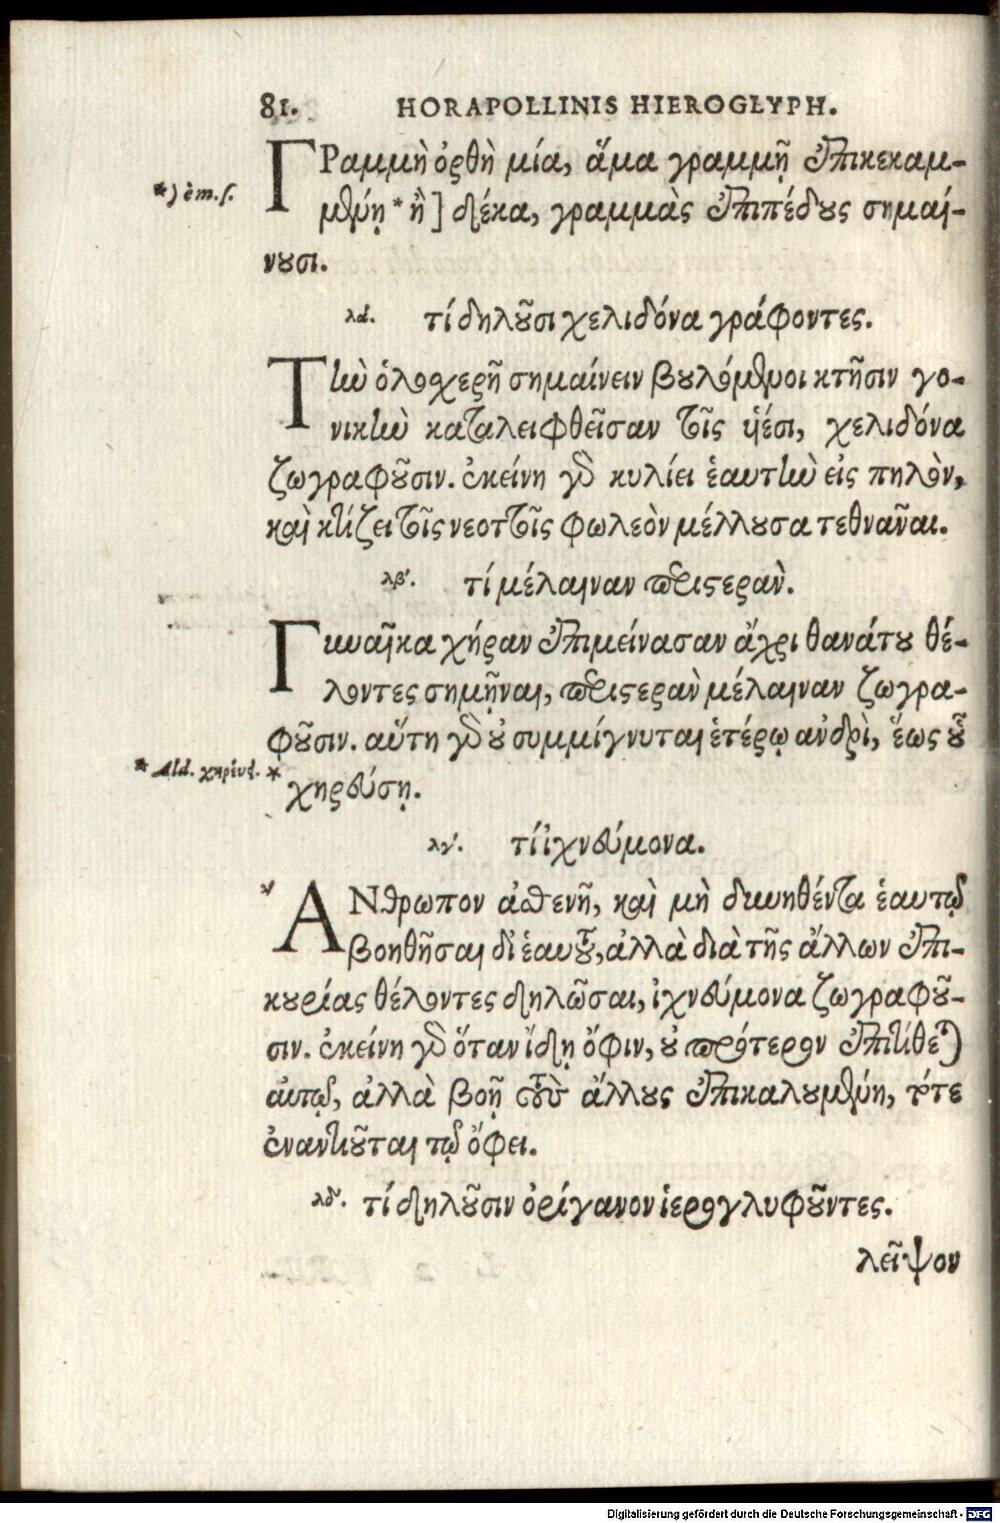 81. HORAPOLLINIS HIEROGLYPH.
ΓΡαμμὴ ὀρθὴ μία, ἅμα γραμμῇ ἐπικεκαμ-
μένῃ * ἢ ] δέκα, γραμμὰς ἐπιπέδους σημαί-
νουσι.
λά. τί δηλοῦσι χελιδόνα γράφοντες.
Τὴν ὁλοχερῆ σημαίνειν βουλόμενοι κτῆσιν γο-
νικὴν καταλειφθεῖσαν τοῖς υἱέσι, χελιδόνα
ζωγραφοῦσιν. ἐκείνη γὰρ κυλίει ἑαυτὴν εἰς πηλὸν,
καὶ κτίζει τοῖς νεοττοῖς φωλεὸν μέλλουσα τεθνᾶναι.
λβ΄. τί μέλαιναν περιστερὰν.
Γυναῖκα χήραν ἐπιμείνασαν ἄχρι θανάτου θέ-
λοντες σημῇναι, περιστερὰν μέλαιναν ζωγρα-
φοῦσιν. αὕτη γὰρ οὐ συμμίγνυται ἑτέρῳ ἀνδρὶ, ἕως οὗ
* Ald. *
χηρεύσῃ.
λγ΄. τί ἰχνεύμονα.
ΑΝθρωπον ἀσθενῆ, καὶ μὴ δυνηθέντα ἑαυτῷ
βοηθῆσαι δι' ἑαυτοῦ, ἀλλὰ διὰ τῆς ἄλλων ἐπι-
κουρίας θέλοντες δηλῶσαι, ἰχνεύμονα ζωγραφοῦ-
σιν. ἐκείνη γὰρ ὅταν ἴδῃ ὄφιν, οὐ πρότερον ἐπιτίθεται
αὐτῷ, ἀλλὰ βοῇ τοὺς ἄλλους ἐπικαλουμένη, τότε
ἐναντιοῦται τῷ ὄφει.
λδ΄. τί δηλοῦσιν ὀρίγανον ἱερογλυφοῦντες.
λεῖψον
Digitalisierung gefördert durch die Deutsche Forschungsgemeinschaft - DFG